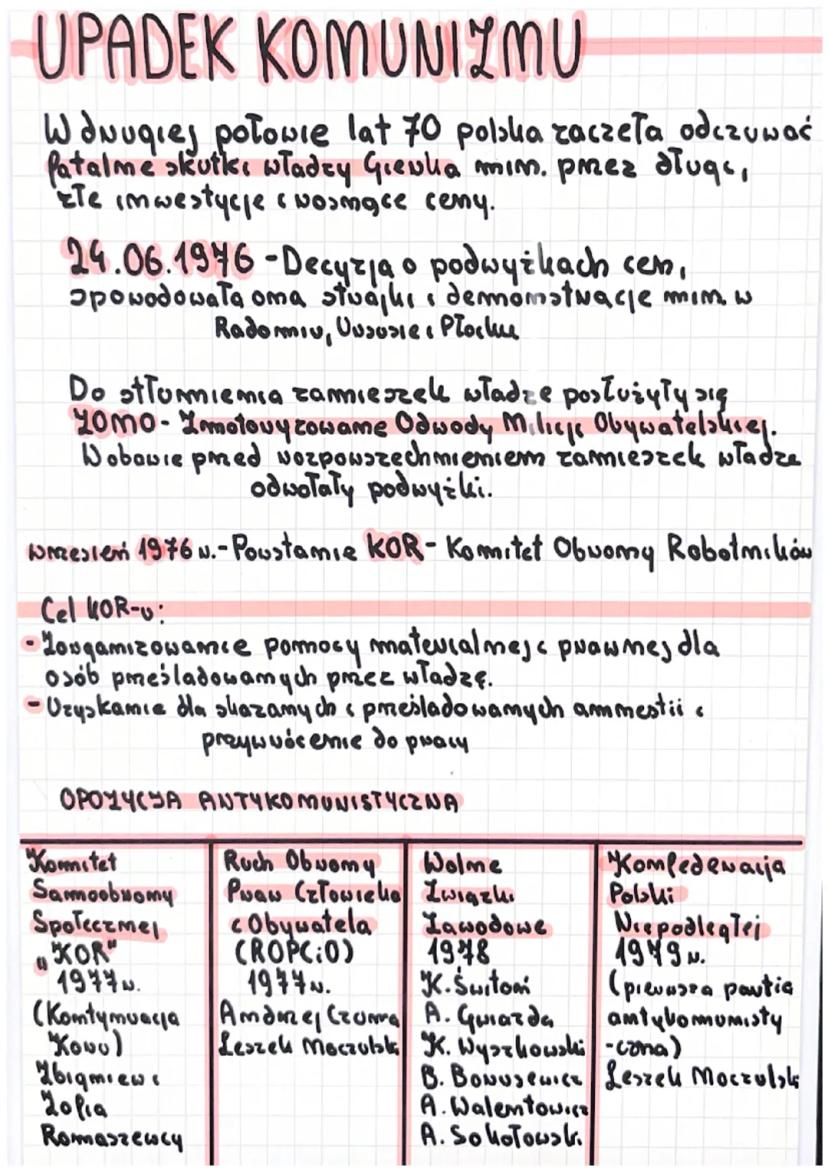 UPADEK KOMUNIZMU
W drugiej połowie lat 70 polska zaczeła odczuwać
fatalne skutki władzy Gierka min. przez długi,
złe inwestycje i rosnące ceny.
24.06.1976 - Decyzja o podwyżkach cen,
spowodowała ona strajki i demonstracje min. w
Radomiu, Ursusie i Płocku
Do stłumienia zamieszek władze posłużyły się
ZOMO - Zmotoryzowane Odwody Milicji Obywatelskiej.
W obawie przed rozpowszechnieniem zamieszek władze
odwołały podwyżki.
wrzesień 1976 r. - Powstanie KOR - Komitet Obrony Robotników
Cel KOR-u:
- Zorganizowanie pomocy materialnej i prawnej dla
osób prześladowanych przez władzę.
- Uzyskanie dla skazanych i prześladowanych amnestii i
przywrócenie do pracy
OPOZYCJA ANTYKOMUNISTYCZNA
Komitet
Samoobrony
Społecznej
"KOR"
1977r.
(Kontynuacja
Koru)
Zbigniew i
Zofia
Romaszewcy
Ruch Obrony
Praw Człowieka
i Obywatela
(ROPCiO)
1977r.
Andrzej Czuma
Leszek Moczulski
Wolne
Związki
Zawodowe
1978
K. Świtoń
A. Gwiazda
K. Wyszkowski
B. Borusewicz
A. Walentowicz
A. Sokołowski
Konfederacja
Polski
Niepodległej
1979 r.
(pierwsza partia
antykomunisty
-czna)
Leszek Moczulski